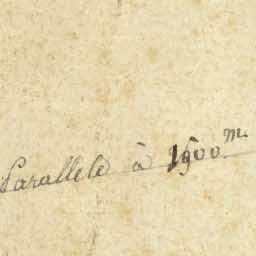 Parallele à 1900 m.